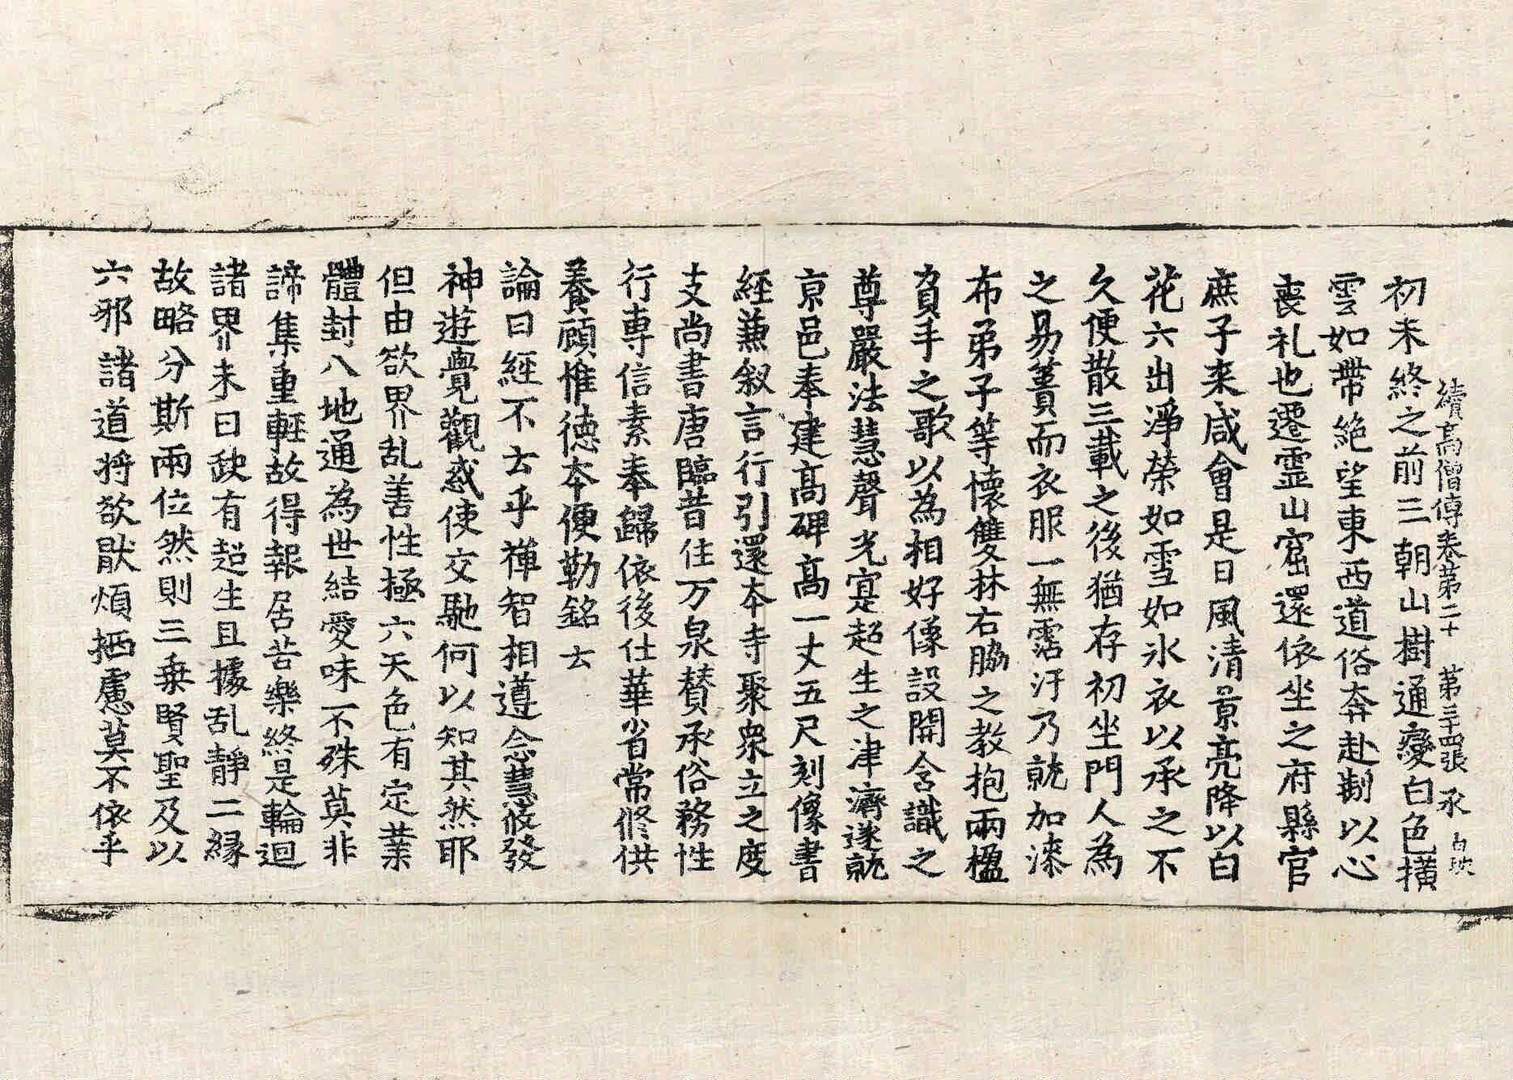 續高僧傳卷第二十 第三十四張 承
初未終之前三朝山樹通變白色橫
雲如帶絶望東西道俗奔赴制以心
喪礼也遷霊山窟還依坐之府縣官
庶子来咸會是日風清景亮降以白
花六出淨榮如雪如氷衣以承之不
久便散三載之後猶存初坐門人為
之易簀而衣服一無霑汙乃就加漆
布弟子等懷雙林右脇之教抱兩楹
負手之歌以為相好像設開含識之
尊嚴法慧聲光寔超生之津濟遂就
京邑奉建髙碑髙一丈五尺刻像書
經兼叙言行引還本寺聚衆立之度
支尚書唐臨昔住万泉賛承俗務性
行專信素奉歸依後仕華省常修供
養顧惟德本便勒銘云
論曰經不云乎禅智相遵念慧攸發
神遊覺觀惑使交馳何以知其然耶
但由欲界乱善性極六天色有定業
體封八地通為世結愛味不殊莫非
諦集重輕故得報居苦樂終是輪迴
諸界未曰缺有超生且據乱靜二緣
故略分斯兩位然則三乗賢聖及以
六邪諸道将欲猒煩栖慮莫不依乎